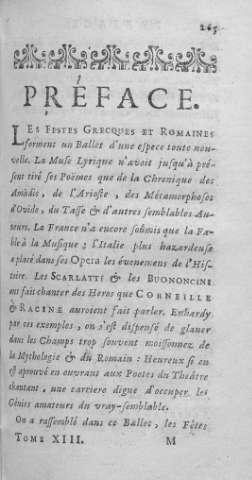 265
PRÉFACE.
LES FESTES GRECQUES ET ROMAINES
forment un Ballet d'une espece toute nou-
velle. La Muse Lyrique n'avoit jusqu'à pré-
sent tiré ses Poëmes que de la Chronique des
Amàdis, de l'Arioste, des Métamorphoses
d'Ovide, du Tasse & d'autres semblables Au-
teurs. La France n'a encore soûmis que la Fa-
ble à la Musique; l'Italie plus hazardeuse
a placé dans ses Opera les évenemens de l'His-
toire. Les SCARLATTI & les BUONONCINI
ont fait chanter des Heros que CORNEILLE
& RACINE auroient fait parler. Enhardy
par ces exemples, on s'est dispensé de glaner
dans les Champs trop souvent moissonnez de
la Mythologie & du Romain: Heureux si on
est aprouvé en ouvrant aux Poëtes du Theâtre
chantant, une carriere digne d'occuper les
Génies amateurs du vray-semblable.
On a rassemblé dans ce Ballet, les Fêtes
TOME XIII. M